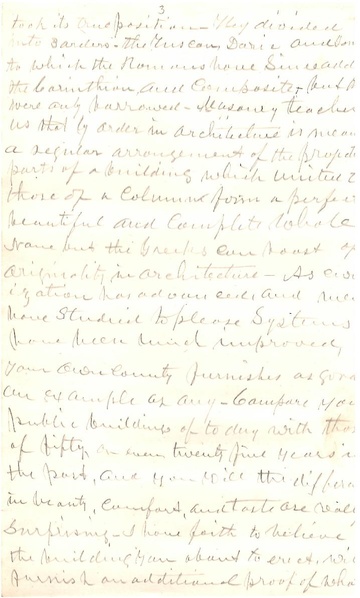 3
took its true position - They divided
into 3 orders - the Tuscan, Doric and
to which the Romans have since add
the Corinthian, and Composite - but
were only borrowed - Masonry teaches
us that by order in architecture is mean
a regular arrangement of the
parts of a building which united
those of a Column form a perfe
beautiful and Complete whole
None but the Greeks can boast of
originality in architecture - As
ization has advanced and men
have Studied to please Systems
have been much improved,
Your own County furnishes as good
an example as any - Compare your
public buildings of to day with those
of fifty, or even twenty five years in
the past, and you will the differ
in beauty, comfort, and taste are
Surprising - I have faith to believe
the building you about to erect, wi
furnish an additional proof of what